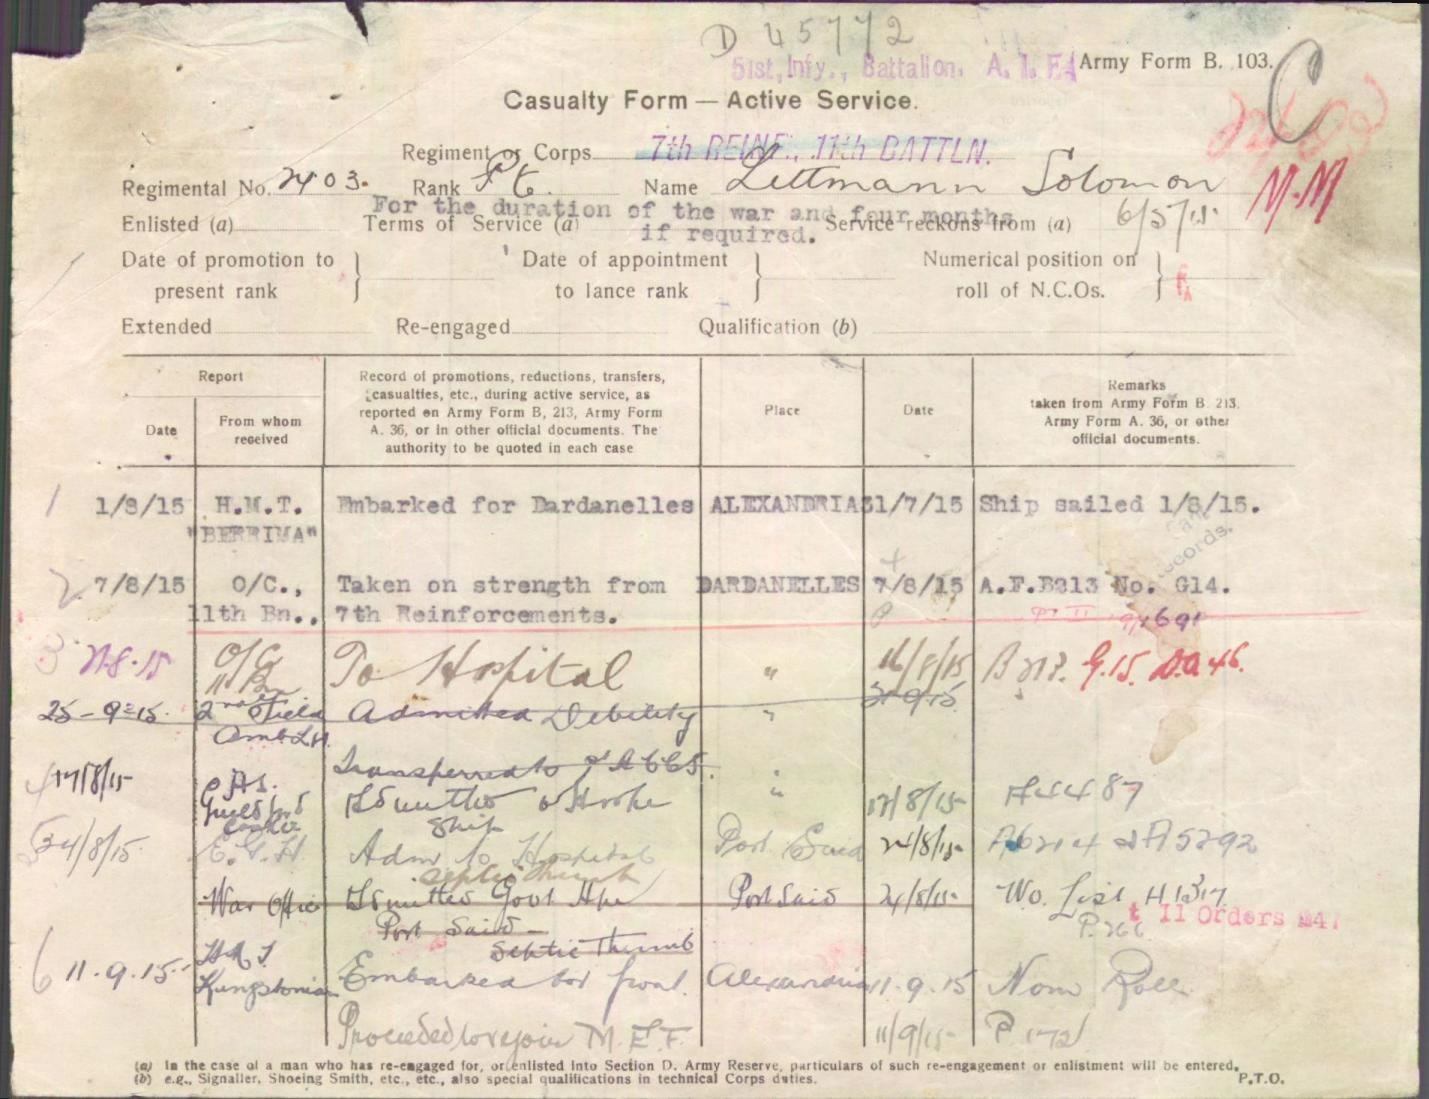 D 45772
51st, Infy., Battalion. A. I. F.
Army Form B. 103.
C
Casualty Form — Active Service.
Regiment or Corps 7th REINF., 11th BATTLN.
Regimental No. 2403. Rank Pte. Name Littmann Solomon
M.M
Enlisted (a) Terms of Service (a) For the duration of the war and four months if required. Service reckons from (a) 6/5/15
Date of promotion to present rank Date of appointment to lance rank Numerical position on roll of N.C.Os.
Extended Re-engaged Qualification (b)
Report
Date From whom received Record of promotions, reductions, transfers, casualties, etc., during active service, as reported on Army Form B, 213, Army Form A. 36, or in other official documents. The authority to be quoted in each case Place Date Remarks taken from Army Form B. 213, Army Form A. 36, or other official documents.
1 1/8/15 H.M.T. "BERRIMA" Embarked for Dardanelles ALEXANDRIA 31/7/15 Ship sailed 1/8/15.
2 7/8/15 O/C., 11th Bn., Taken on strength from 7th Reinforcements. DARDANELLES 7/8/15 A.F.B213 No. G14.
3 O/C 11 Bn To Hospital " 16/8/15 B213. G.15. D.A 46.
25-9-15. 2nd Field Amb L.H. Admitted Debility " 21.9.15
Transferred to
4 17/8/15 Guildford Castle Tsmitted to Hosp Ship " 17/8/15 A4487
5 24/8/15 E.G.H Adm to Hospital septic thumb Port Said 24/8/15 & A5292
War Office Tsmitted Govt Port Said - Septic Thumb Port Said 24/8/15 Wo. List H 1317
P. 266
II Orders
6 11.9.15 Kingstonian Embarked for front. Alexandria 11.9.15 Nom Roll
Proceeded to rejoin M.E.F. 11/9/15 P 172
(a) In the case of a man who has re-engaged for, or enlisted into Section D. Army Reserve, particulars of such re-engagement or enlistment will be entered.
(b) e.g., Signaller, Shoeing Smith, etc., etc., also special qualifications in technical Corps duties.
P.T.O.